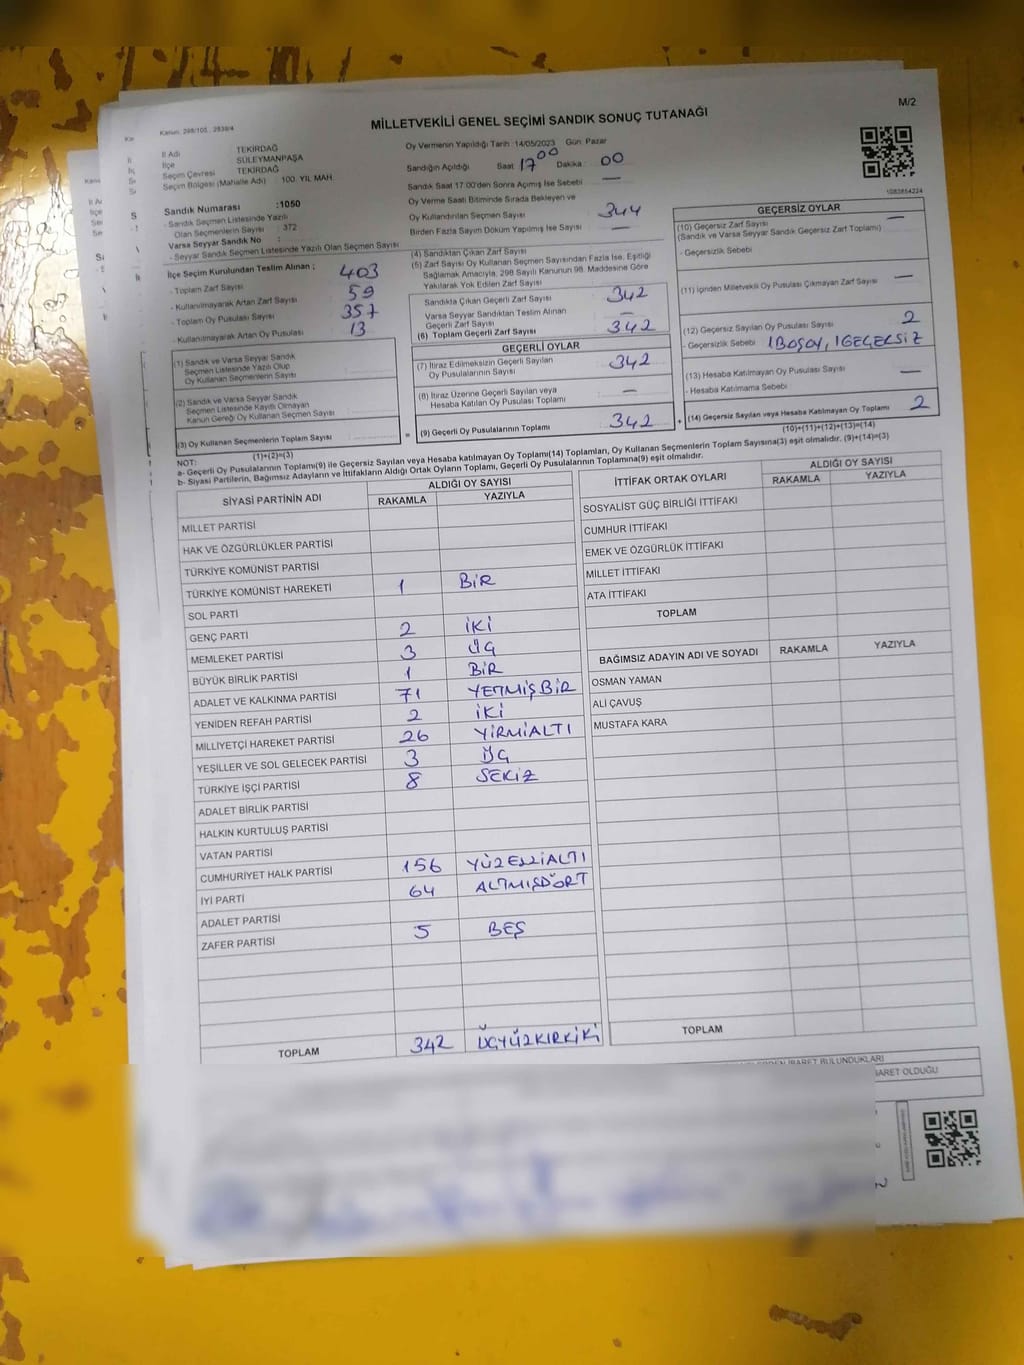 M/2
Kanun: 298/105 , 2839/4
MİLLETVEKİLİ GENEL SEÇİMİ SANDIK SONUÇ TUTANAĞI
İl Adı TEKİRDAĞ
İlçe SÜLEYMANPAŞA
Seçim Çevresi TEKİRDAĞ
Seçim Bölgesi (Mahalle Adı) : 100. YIL MAH.
Oy Vermenin Yapıldığı Tarih :14/05/2023 Gün: Pazar
Sandığın Açıldığı Saat 17 00 Dakika : 00
Sandık Saat 17:00'den Sonra Açılmış İse Sebebi —
Oy Verme Saati Bitiminde Sırada Bekleyen ve
Oy Kullandırılan Seçmen Sayısı 344
Birden Fazla Sayım Döküm Yapılmış İse Sayısı —
1083854224
Sandık Numarası :1050
- Sandık Seçmen Listesinde Yazılı
Olan Seçmenlerin Sayısı : 372
Varsa Seyyar Sandık No :
- Seyyar Sandık Seçmen Listesinde Yazılı Olan Seçmen Sayısı
İlçe Seçim Kurulundan Teslim Alınan ;
- Toplam Zarf Sayısı 403
- Kullanılmayarak Artan Zarf Sayısı 59
- Toplam Oy Pusulası Sayısı 357
- Kullanılmayarak Artan Oy Pusulası 13
(1) Sandık ve Varsa Seyyar Sandık
Seçmen Listesinde Yazılı Olup
Oy Kullanan Seçmenlerin Sayısı
(2) Sandık ve Varsa Seyyar Sandık
Seçmen Listesinde Kayıtlı Olmayan
Kanun Gereği Oy Kullanan Seçmen Sayısı
(3) Oy Kullanan Seçmenlerin Toplam Sayısı
(1)+(2)=(3)
(4) Sandıktan Çıkan Zarf Sayısı
(5) Zarf Sayısı Oy Kullanan Seçmen Sayısından Fazla İse, Eşitliği
Sağlamak Amacıyla, 298 Sayılı Kanunun 98. Maddesine Göre
Yakılarak Yok Edilen Zarf Sayısı
Sandıkta Çıkan Geçerli Zarf Sayısı 342
Varsa Seyyar Sandıktan Teslim Alınan
Geçerli Zarf Sayısı —
(6) Toplam Geçerli Zarf Sayısı 342
GEÇERLİ OYLAR
(7) İtiraz Edilmeksizin Geçerli Sayılan
Oy Pusulalarının Sayısı 342
(8) İtiraz Üzerine Geçerli Sayılan veya
Hesaba Katılan Oy Pusulası Toplamı —
= (9) Geçerli Oy Pusulalarının Toplamı 342 +
GEÇERSİZ OYLAR
(10) Geçersiz Zarf Sayısı —
(Sandık ve Varsa Seyyar Sandık Geçersiz Zarf Toplamı)
- Geçersizlik Sebebi
(11) İçinden Milletvekili Oy Pusulası Çıkmayan Zarf Sayısı —
(12) Geçersiz Sayılan Oy Pusulası Sayısı 2
- Geçersizlik Sebebi 1 BOŞ OY, 1 GEÇERSİZ
(13) Hesaba Katılmayan Oy Pusulası Sayısı —
- Hesaba Katılmama Sebebi
(14) Geçersiz Sayılan veya Hesaba Katılmayan Oy Toplamı 2
(10)+(11)+(12)+(13)=(14)
NOT:
a- Geçerli Oy Pusulalarının Toplamı(9) ile Geçersiz Sayılan veya Hesaba katılmayan Oy Toplamı(14) Toplamları, Oy Kullanan Seçmenlerin Toplam Sayısına(3) eşit olmalıdır. (9)+(14)=(3)
b- Siyasi Partilerin, Bağımsız Adayların ve İttifakların Aldığı Ortak Oyların Toplamı, Geçerli Oy Pusulalarının Toplamına(9) eşit olmalıdır.
SİYASİ PARTİNİN ADI ALDIĞI OY SAYISI
RAKAMLA YAZIYLA
MİLLET PARTİSİ
HAK VE ÖZGÜRLÜKLER PARTİSİ
TÜRKİYE KOMÜNİST PARTİSİ
TÜRKİYE KOMÜNİST HAREKETİ 1 BİR
SOL PARTİ
GENÇ PARTİ 2 İKİ
MEMLEKET PARTİSİ 3 ÜÇ
BÜYÜK BİRLİK PARTİSİ 1 BİR
ADALET VE KALKINMA PARTİSİ 71 YETMİŞBİR
YENİDEN REFAH PARTİSİ 2 İKİ
MİLLİYETÇİ HAREKET PARTİSİ 26 YİRMİALTI
YEŞİLLER VE SOL GELECEK PARTİSİ 3 ÜÇ
TÜRKİYE İŞÇİ PARTİSİ 8 SEKİZ
ADALET BİRLİK PARTİSİ
HALKIN KURTULUŞ PARTİSİ
VATAN PARTİSİ
CUMHURİYET HALK PARTİSİ 156 YÜZELLİALTI
İYİ PARTİ 64 ALTMIŞDÖRT
ADALET PARTİSİ
ZAFER PARTİSİ 5 BEŞ
TOPLAM 342 ÜÇYÜZKIRKİKİ
İTTİFAK ORTAK OYLARI ALDIĞI OY SAYISI
RAKAMLA YAZIYLA
SOSYALİST GÜÇ BİRLİĞİ İTTİFAKI
CUMHUR İTTİFAKI
EMEK VE ÖZGÜRLÜK İTTİFAKI
MİLLET İTTİFAKI
ATA İTTİFAKI
TOPLAM
BAĞIMSIZ ADAYIN ADI VE SOYADI RAKAMLA YAZIYLA
OSMAN YAMAN
ALİ ÇAVUŞ
MUSTAFA KARA
TOPLAM
İBARET BULUNDUKLARI
İBARET OLDUĞU